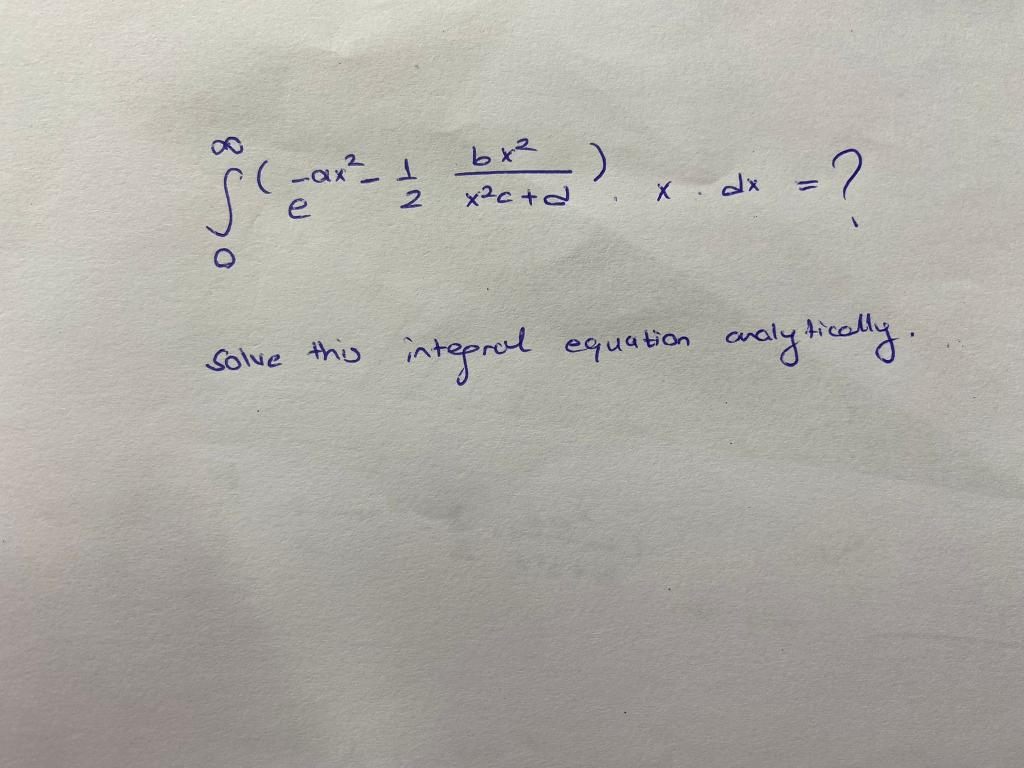 ∫₀^∞ ( e^(-ax² - 1/2 bx²/(x²c+d)) ) . x . dx = ?
Solve this integral equation analytically.